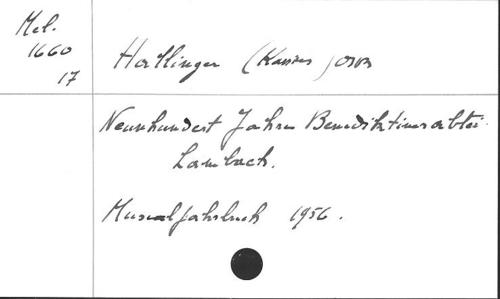 Mel.
1660
17
Hallinger (Kassius) OSB
Neunhundert Jahre Benediktinerabtei
Lambach.
Musealjahrbuch 1956.